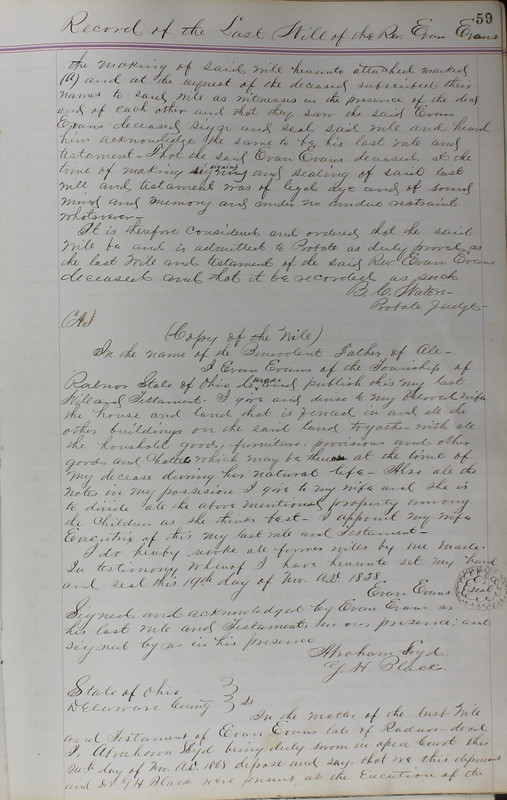 59
Record of the Last Will of the Rev. Evan Evans
the making of said will hereunto attached marked
(A) and at the request of the deceased subscribed their
names to said will as witnesses in the presence of the decd
and of each other and that they saw the said Evan
Evans deceased sign and seal said will and heard
him acknowledge the same to be his last will and
testament. That the said Evan Evans deceased at the
time of making signing and sealing of said last
will and testament was of legal age and of sound
mind and memory and under no undue restraint
whatsoever—
It is therefore considered and ordered that the said
will be and is admitted to Probate as duly proved as
the last Will and testament of the said Rev. Evan Evans
deceased and that it be recorded as such
B. C. Waters—
Probate Judge—
(A)
(Copy of the Will)
In the name of the Benevolent Father of All—
I Evan Evans of the Township of
Radnor State of Ohio do make and publish this my last
Will and Testament. I give and devise to my beloved wife
the house and land that is fenced in and all the
other buildings on the said land together with all
the houshold goods, furniture, provisions and other
goods and Chattels which may be thereon at the time of
my decease during her natural life— Also all the
notes in my possesion I give to my wife and she is
to divide all the above mentioned property among
the Children as she thinks best— I appoint my wife
Executrix of this my last will and Testament—
I do hereby revoke all former wills by me made.
In testimony whereof I have hereunto set my hand
and seal this 19th day of Nov. A.D. 1858
Evan Evans
seal
Signed and acknowledged by Evan Evans as
his last will and Testament, in our presence; and
signed by us in his presence
Abraham Loyd.
G. H. Black
State of Ohio
Delaware County } ss
In the matter of the last Will
and Testament of Evan Evans late of Radnor decd.
I, Abraham Loyd being duly sworn in open Court this
day of Nov. A.D. 1868 depose and say, that we this deponent
and Dr G H Black were present at the Execution of the